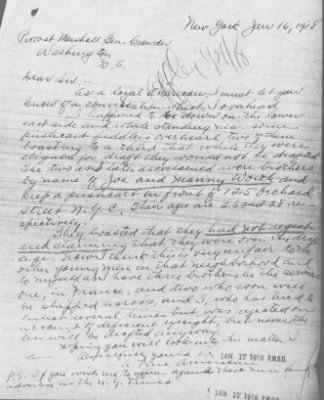 New York Jan 16, 1918
Provost Marshall Gen. Crowder
Washington
D.C.
Dear Sir:-
As a loyal American, I must let you
know of a conversation which I overheard
I happened to be down on the lower
east side and while standing near some
pushcart peddlers overheard two of them
boasting to a third that while they were
eligible for draft they would not be drafted.
The two I later ascertained were brothers
by name of Joe and Manny and
keep a pushcart in front of 125 Orchard
Street N.Y.C. Their ages are 26 and 28 re-
spectively.
They boasted that they had not regist-
ered claiming that they were over the draft
age. Now I think this is very unfair to the
other young men in that neighborhood and
to myself as I have three brothers in the service
one, in France, and two who soon will
be shipped across, and I, who has tried to
enlist several times but was rejected on
account of deficient eyesight, but neverthe-
less will be drafted anyway.
Hoping you will look into this matter
I am Respectfully yours
a True American
JAN 17 1918 P.M.G.O.
P.S. If you wish me to appear against these men kindly
advertise in the N.Y. Times
JAN 17 1918 P.M.G.O.